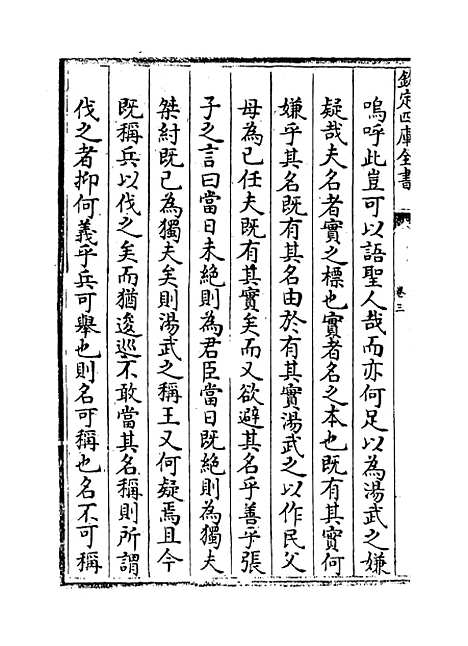 欽定四庫全書
卷三
嗚呼此豈可以語聖人哉而亦何足以為湯武之嫌
疑哉夫名者實之標也實者名之本也既有其實何
嫌乎其名既有其名由於有其實湯武之以作民父
母為已任夫既有其實矣而又欲避其名乎善乎張
子之言曰當日未絶則為君臣當日既絶則為獨夫
桀紂既已為獨夫矣則湯武之稱王又何疑焉且今
既稱兵以伐之矣而猶逡巡不敢當其名稱則所謂
伐之者抑何義乎兵可舉也則名可稱也名不可稱